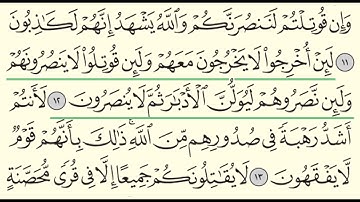 وَإِن قُوتِلْتُمْ لَنَنصُرَنَّكُمْ وَٱللَّهُ يَشْهَدُ إِنَّهُمْ لَكَٰذِبُونَ
١١ لَئِنْ أُخْرِجُوا۟ لَا يَخْرُجُونَ مَعَهُمْ وَلَئِن قُوتِلُوا۟ لَا يَنصُرُونَهُمْ
وَلَئِن نَّصَرُوهُمْ لَيُوَلُّنَّ ٱلْأَدْبَٰرَ ثُمَّ لَا يُنصَرُونَ ١٢ لَأَنتُمْ
أَشَدُّ رَهْبَةً فِى صُدُورِهِم مِّنَ ٱللَّهِ ۚ ذَٰلِكَ بِأَنَّهُمْ قَوْمٌ
لَّا يَفْقَهُونَ ١٣ لَا يُقَٰتِلُونَكُمْ جَمِيعًا إِلَّا فِى قُرًى مُّحَصَّنَةٍ